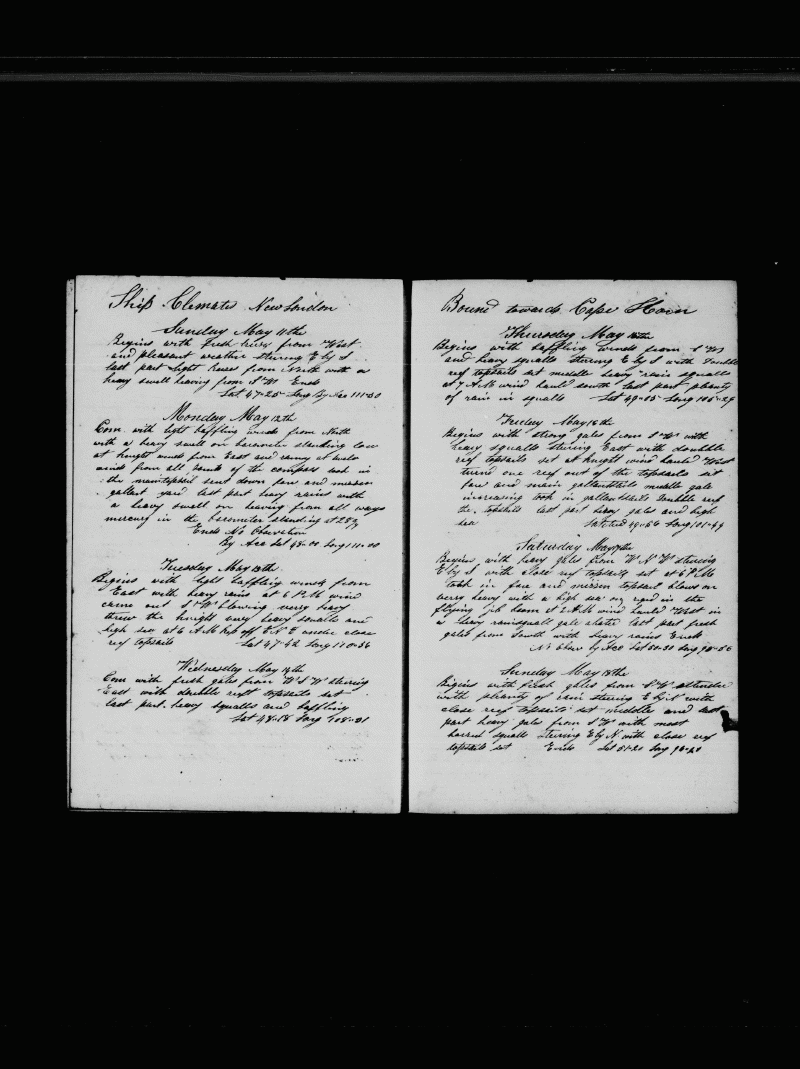 Ship Clematis New London
Sunday May 11th
Begins with fresh breeses from West
and pleasant weather stering E by S
last part light breses from North with a
heavy swell heaving from S W Ends
Lat 47-25 Long By Aco 111-30
Monday May 12th
Com with light baffling winds from North
with a heavy swell on barometer standing low
at knight winds from East and rainy at
winds from all points of the compass took in
the maintopsail sent down fore and mizzen
gallant yard last part heavy rains with
a heavy swell on heaving from all ways
mercury in the barometer standing at
Ends No Observation
By Aco Lat 48-00 Long 111-00
Tuesday May 13th
Begins with light baffling winds from
East with heavy rains at 6 PM wind
came out S W blowing verry heavy
threw the knight very heavy squalls and
high sea at 6 AM kep off E N E under close
reef topsails Lat 47-42 Long 110-56
Wednesday May 14th
Com with fresh gales from W S W stering
East with double reeft topsails set
last part heavy squalls and baffling
Lat 48-18 Long 108-31
Bound towards Cape Horn
Thursday May 15th
Begins with baffling winds from S W
and heavy squalls stering E by S with double
reef topsails set middle heavy rain squalls
at 7 AM wind hauld south last part plenty
of rain in squalls Lat 49-05 Long 105-29
Friday May 16th
Begins with strong gales from S W with
heavy squalls stering East with doubble
reef topsails set at knight wind hauld West
turnd one reef out of the topsails set
fore and main gallantsails middle gale
increasing took in gallantsails doubble reef
the topsails last part heavy gales and high
sea Latitud 49-56 Long 101-49
Saturday May 17th
Begins with heavy gales from W N W stering
E by S with close reef topsails set at 6 PM
took in fore and mizzen topsail blows on
verry heavy with a high sea on in the
flying jib boom at 2 AM wind hauld West in
a heavy rainsquall gale abated last part fresh
gales from South with heavy rains Ends
No Obsev by Aco Lat 50-30 Long 98-56
Sunday May 18th
Begins with fresh gales from S W attended
with plenty of rain stering E by N with
close reef topsails set middle and last
part heavy gales from S W with most
horrid squalls stering E by N with close reef
topsails set Ends Lat 51-20 Long 96-20